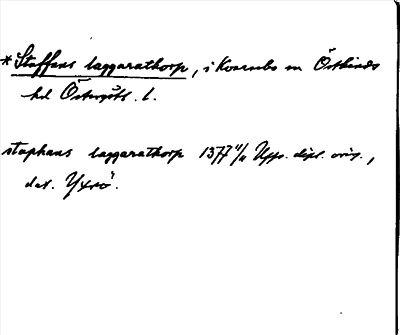 *Staffans laggarathorp, i Kvarsebo sn Östkinds
hd Östergötl. l.
staphans laggarathorp 1377 11/11 Upps. dipl. orig.,
dat. Yxrö.